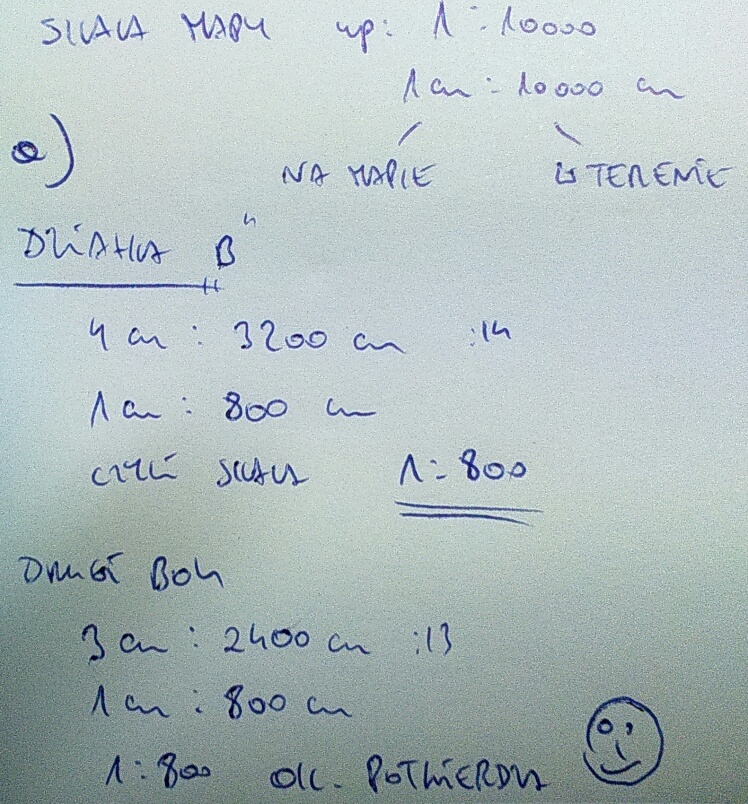 SKALA MAPY np: 1:10000
1 cm : 10000 cm
a)
NA MAPIE W TERENIE
DZIAŁKA B"
4 cm : 3200 cm :/4
1 cm : 800 cm
CZYLI SKALA 1:800
DRUGI BOK
3 cm : 2400 cm :/3
1 cm : 800 cm
1:800 OK. POTWIERDZA